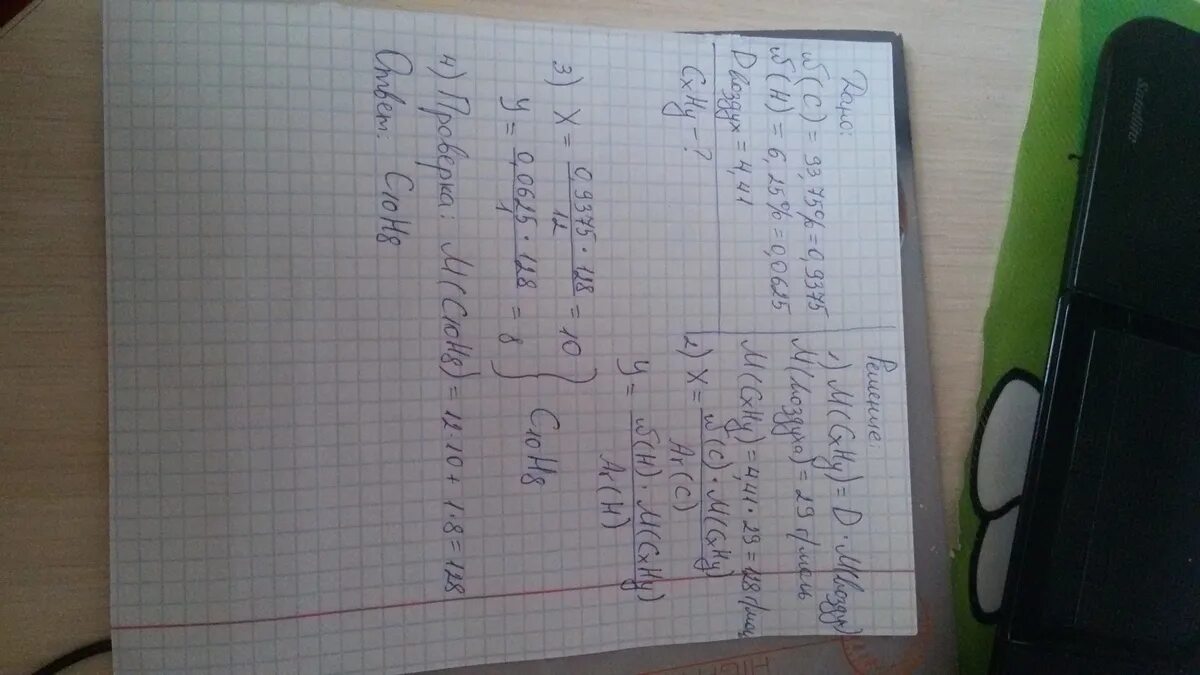 Дано:
w(C) = 93,75% = 0,9375
w(H) = 6,25% = 0,0625
D воздух = 4,41
CxHy - ?
Решение:
1) M(CxHy) = D · M(воздух)
M(воздуха) = 29 г/моль
M(CxHy) = 4,41 · 29 = 128 г/моль
2) X = w(C) · M(CxHy) / Ar(C)
y = w(H) · M(CxHy) / Ar(H)
3) X = 0,9375 · 128 / 12 = 10
y = 0,0625 · 128 / 1 = 8 } C10H8
4) Проверка: M(C10H8) = 12·10 + 1·8 = 128
Ответ: C10H8